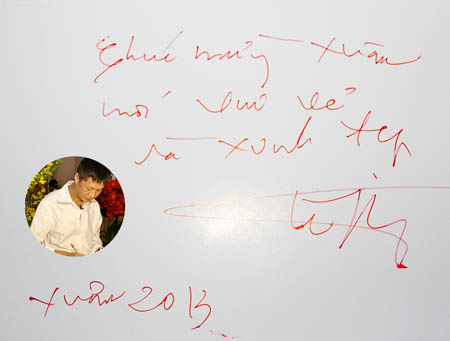 Chúc mừng xuân
mới vui vẻ
và xinh đẹp
xuân 2013